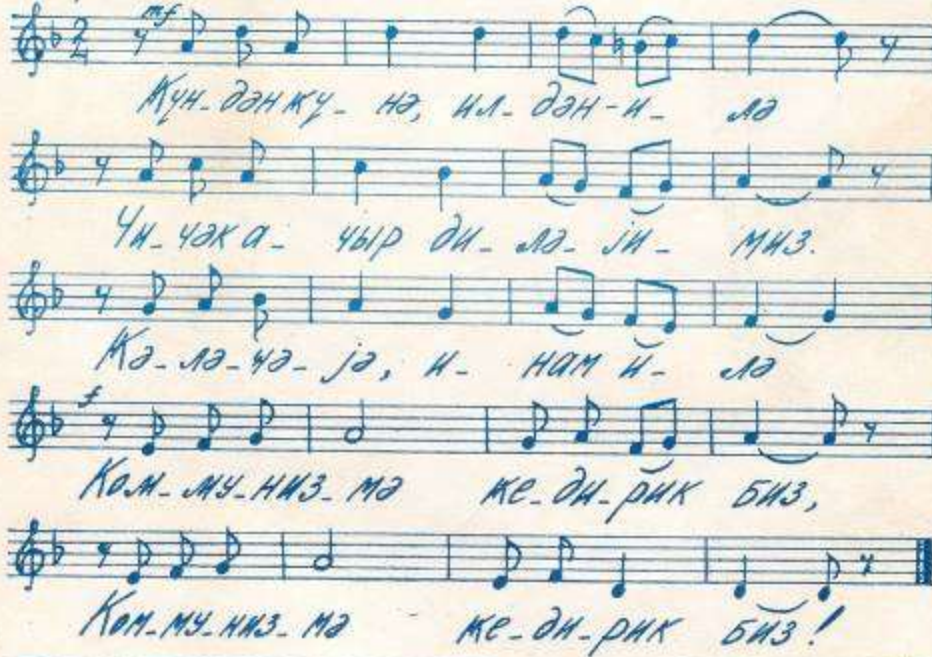 mf
Күн-дән кү-нә, ил-дән-и-лә
Чи-чәк а-чыр ди-лә-ји-миз.
Кә-лә-чә-јә, и-нам и-лә
f
Ком-му-низ-мә ке-ди-рик биз,
Ком-му-низ-мә ке-ди-рик биз!